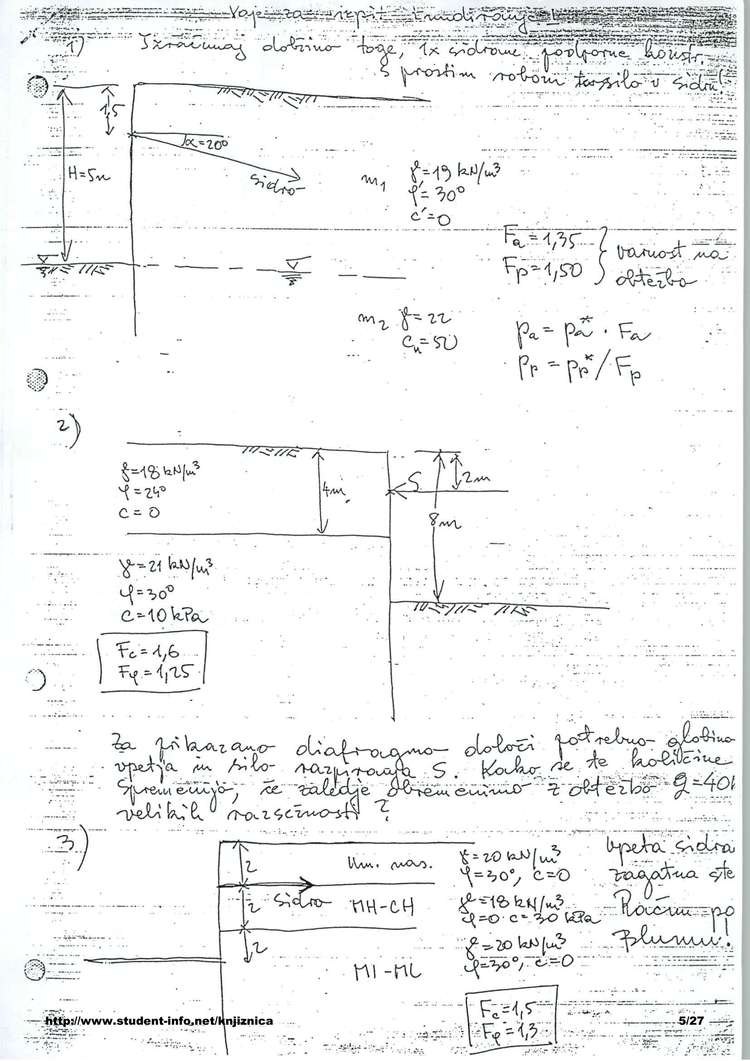 Vaje za izpit Fundiranje
1) Izračunaj dolžino toge, 1x sidrane podporne konstr.
s prostim robom ter silo v sidru!
1,5
α=20°
H=5m
sidro
m1 γ=19 kN/m³
φ'=30°
c'=0
Fa=1,35
Fp=1,50
varnost na
obtežbo
m2 γ=22
cu=50
pa = pa* · Fa
pp = pp* / Fp
2)
γ=18 kN/m³
φ=24°
c=0
4m
S
2m
8m
γ=21 kN/m³
φ=30°
c=10 kPa
Fc=1,6
Fφ=1,25
Za prikazano diafragmo določi potrebno globino
vpetja in silo razpiranja S. Kako se te količine
spremenijo, če zaledje obremenimo z obtežbo q=40
velikih razsežnosti?
3.)
2
Um. nas.
γ=20 kN/m³
φ=30°, c=0
Vpeta sidra
zagatna ste
sidro
2
MH-CH
γ=18 kN/m³
φ=0 c=30 kPa
Račun po
Blumu!
2
MI-ML
γ=20 kN/m³
φ=30°, c=0
Fc=1,5
Fφ=1,3
http://www.student-info.net/knjiznica
5/27